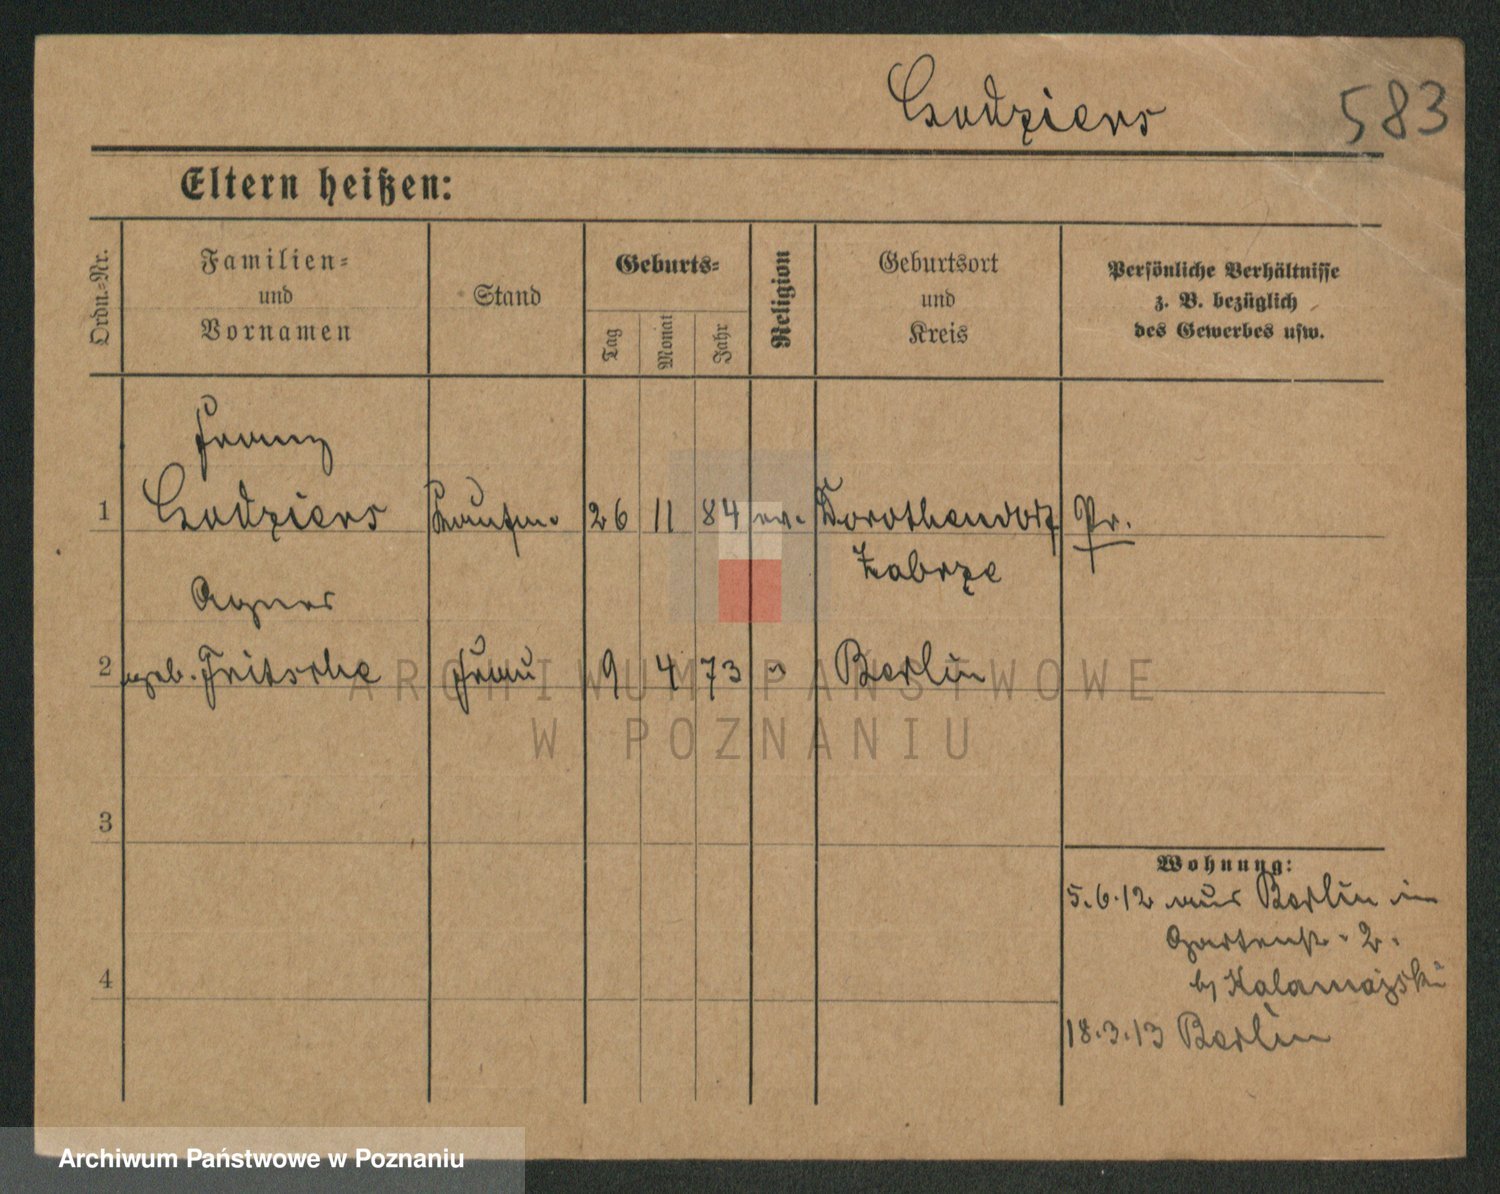 583
Eltern heißen:
Ordn.-Nr.
Familien-
und
Vornamen
Stand
Geburts-
Tag
Monat
Jahr
Religion
Geburtsort
und
Kreis
Persönliche Verhältnisse
z. B. bezüglich
des Gewerbes usw.
Franz
1 Kaufm. 26 11 84 Dorothendorf Pr.
Zabrze
Agnes
2 geb. Fritsche Frau 9 4 73 " Berlin
3
4
Wohnung:
5.6.12 aus Berlin in
Gartenstr. 2.
by Kalamajski
18.3.13 Berlin
ARCHIWUM PAŃSTWOWE
W POZNANIU
Archiwum Państwowe w Poznaniu